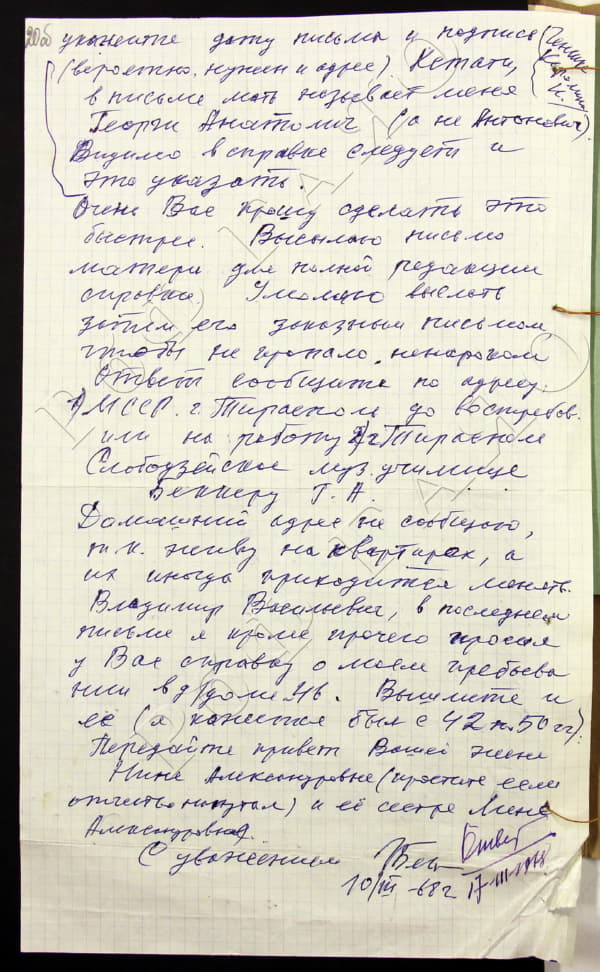 20об
укажите дату письма и подпись
(вероятно, нужен и адрес). Кстати,
в письме мать называет меня
Георги Анатолич (а не Антонович).
Видимо в справке следует и
это указать.
Очень Вас прошу сделать это
быстрее. Высылаю письмо
матери для полной редакции
справки. Умоляю выслать
затем его заказным письмом,
чтобы не пропало ненароком
Ответ сообщите по адресу:
1) МССР. г. Тирасполь до востребов.
или на работу 2) г Тирасполь
Слободзейское муз. училище
Беккеру Г. А.
Домашний адрес не сообщаю,
т. к. живу на квартирах, а
их иногда приходится менять.
Владимир Васильевич, в последнем
письме я кроме прочего просил
у Вас справку о моем пребыва
нии в д/доме 46. Вышлите и
ее (я кажется был с 42 п. 50 гг).
Передайте привет Вашей жене
Нине Александровне (простите если
отчество напутал) и её сестре Мине
Александровне.
С уважением Бек
10/III-68 г
Ответ
17-III-1968